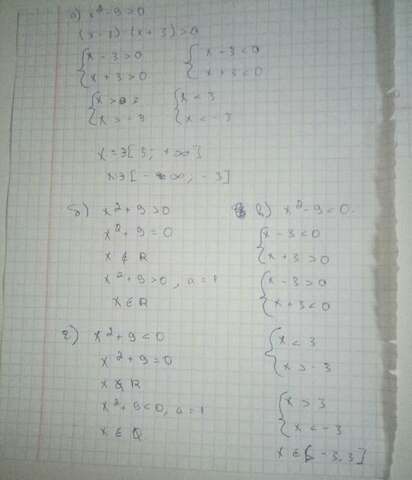 а) x² - 9 > 0
(x - 3) · (x + 3) > 0
{ x - 3 > 0
x + 3 > 0
{ x - 3 < 0
x + 3 < 0
{ x > 3
x > -3
{ x < 3
x < -3
[ 3; +∞ ]
[ -∞, -3 ]
б) x² + 9 > 0
x² + 9 = 0
x ∉ R
x² + 9 > 0, a = 1
x ∈ R
в) x² - 9 < 0.
{ x - 3 < 0
x + 3 > 0
{ x - 3 > 0
x + 3 < 0
{ x < 3
x > -3
{ x > 3
x < -3
x ∈ [ -3, 3 ]
г) x² + 9 < 0
x² + 9 = 0
x ∉ R
x² + 9 < 0, a = 1
x ∈ Q